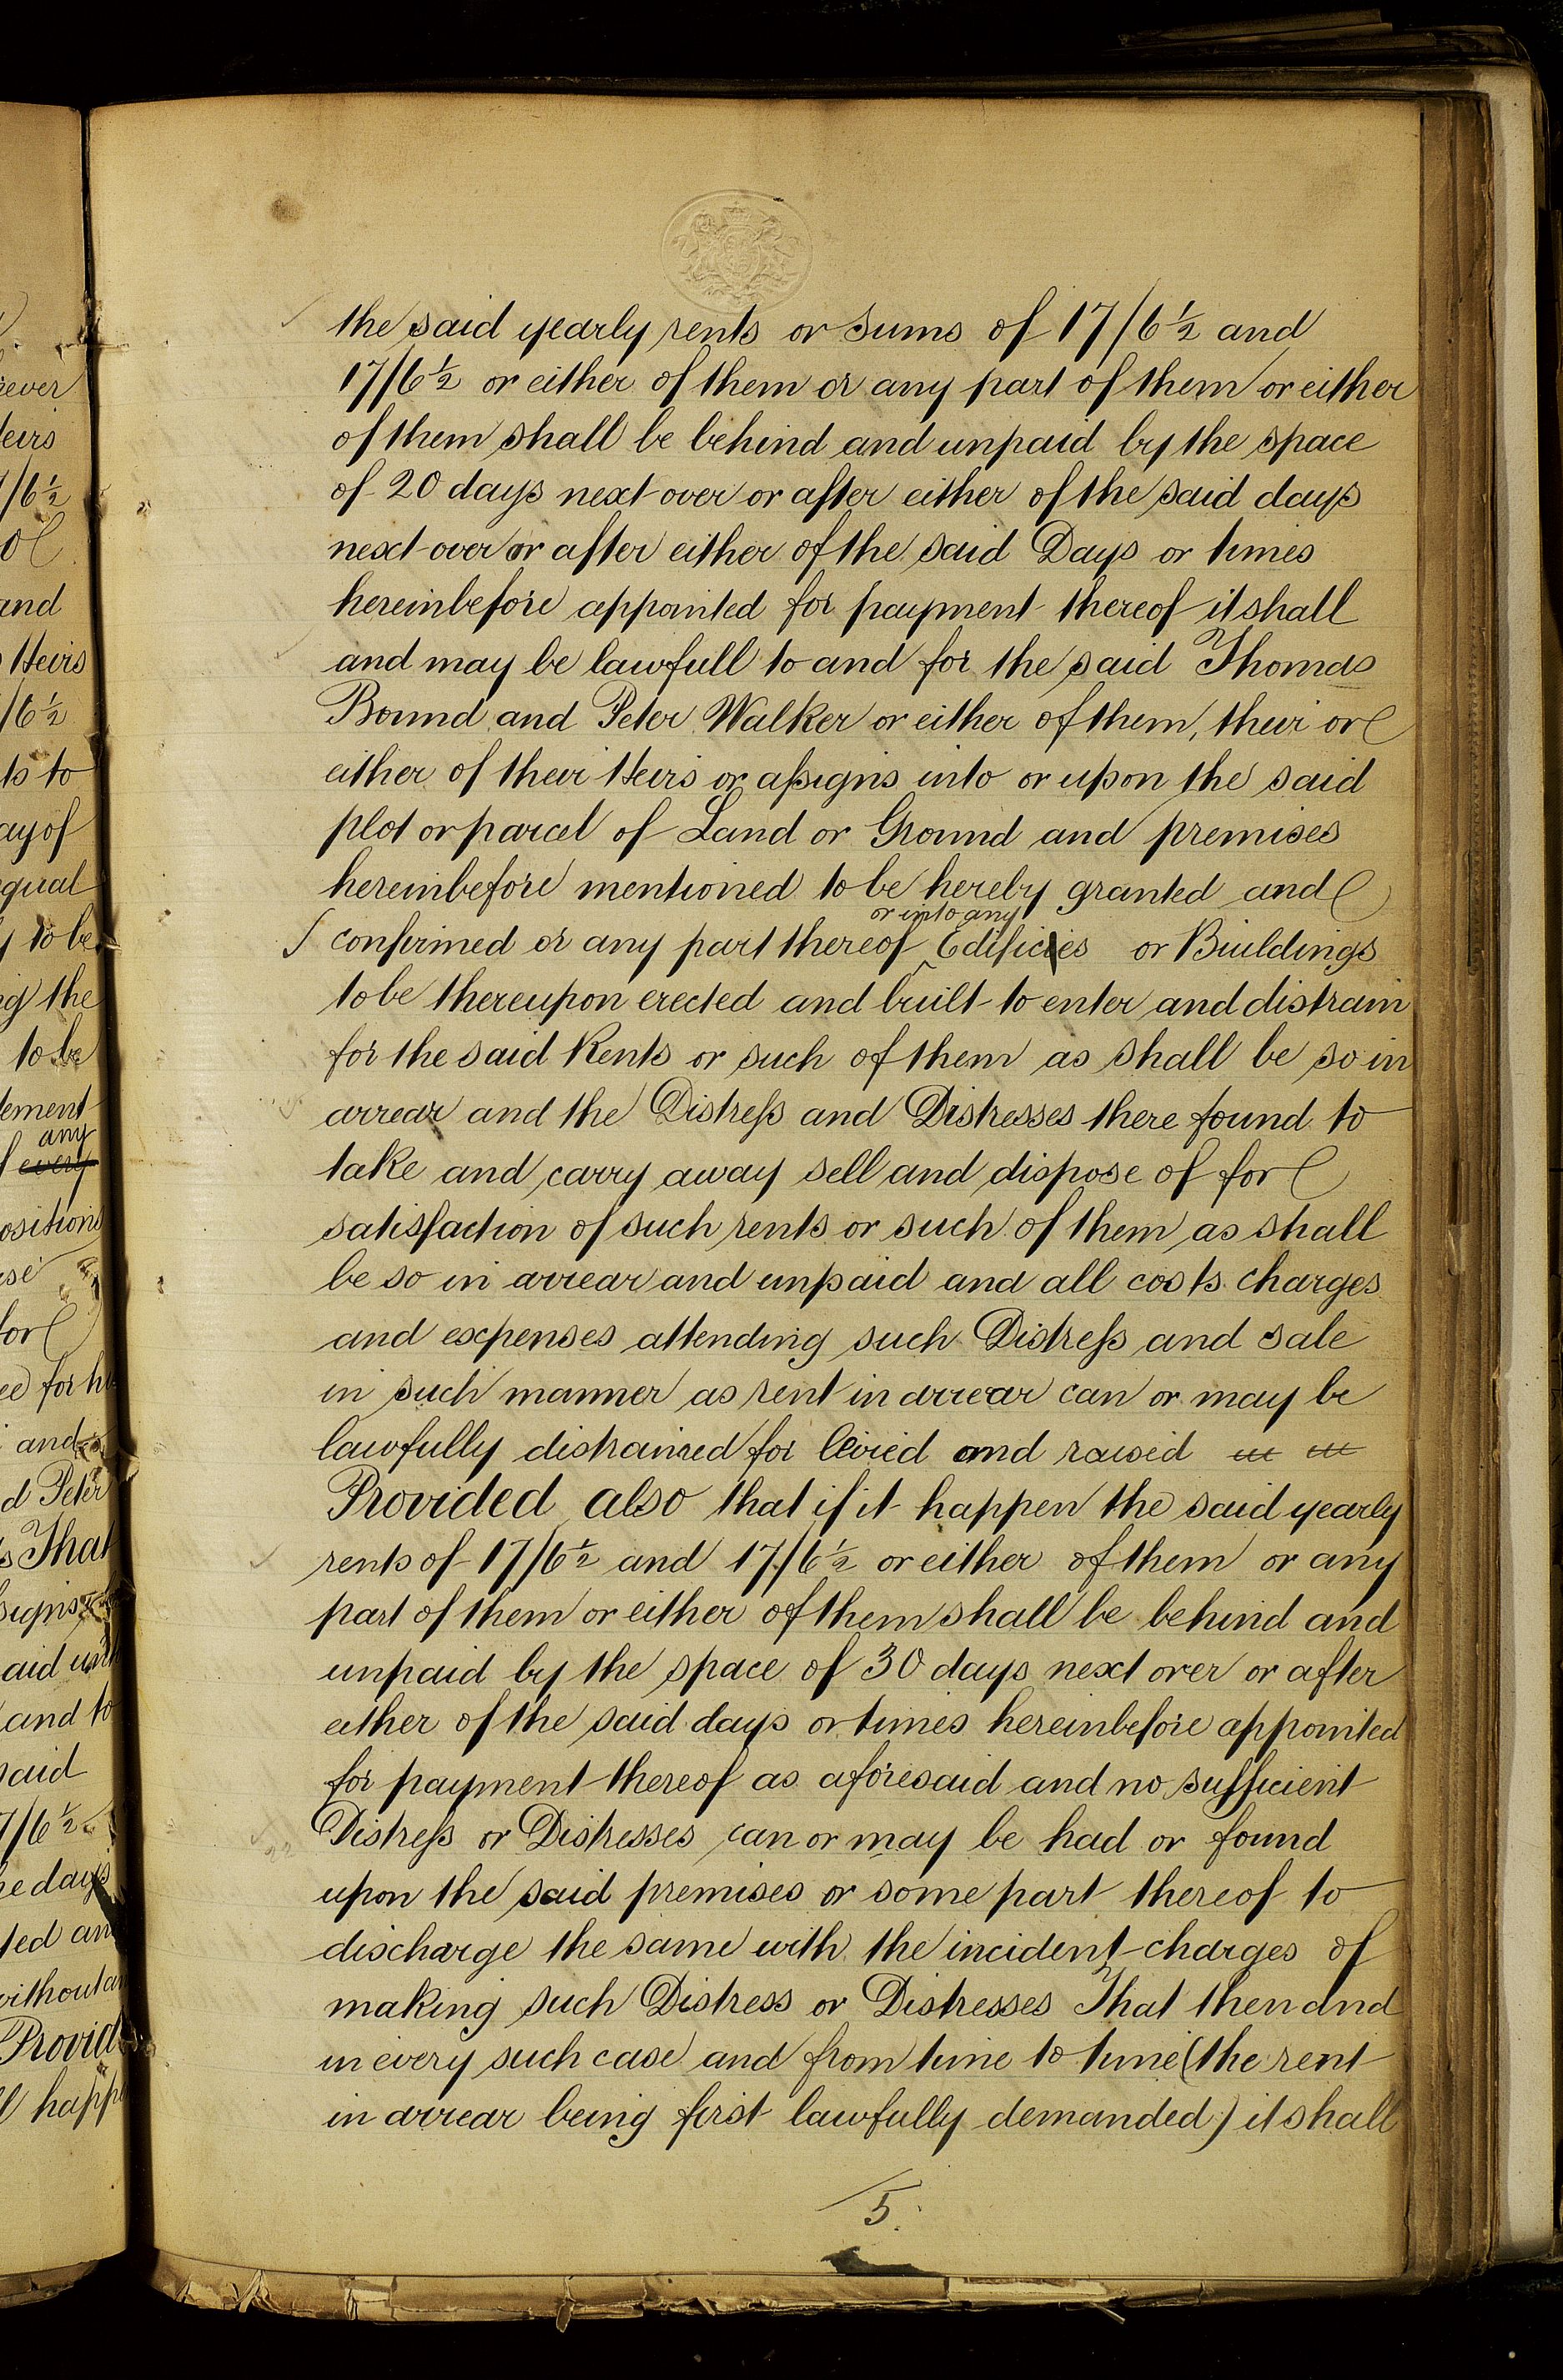 the said yearly rents or sums of 17/6½ and
17/6½ or either of them or any part of them or either
of them shall be behind and unpaid by the space
of 20 days next over or after either of the said days
next over or after either of the said Days or times
hereinbefore appointed for payment thereof it shall
and may be lawfull to and for the said Thomas
Bound and Peter Walker or either of them, their or
either of their Heirs or aſsigns into or upon the said
plot or parcel of Land or Ground and premises
hereinbefore mentioned to be hereby granted and
or into any
confirmed or any part thereof ^ Edificies or Buildings
to be thereupon erected and built to enter and distrain
for the said Rents or such of them as shall be so in
arrear and the Distreſs and Distresses there found to
take and carry away sell and dispose of for
satisfaction of such rents or such of them as shall
be so in arrear and unpaid and all costs charges
and expenses attending such Distreſs and sale
in such manner as rent in arrear can or may be
lawfully distrained for levied and raised
Provided also that if it happen the said yearly
rents of 17/6½ and 17/6½ or either of them or any
part of them or either of them shall be behind and
unpaid by the space of 30 days next over or after
either of the said days or times hereinbefore appointed
for payment thereof as aforesaid and no sufficient
Distreſs or Distresses can or may be had or found
upon the said premises or some part thereof to
discharge the same with the incident charges of
making such Distress or Distresses That then and
in every such case and from time to time (the rent
in arrear being first lawfully demanded) it shall
5.